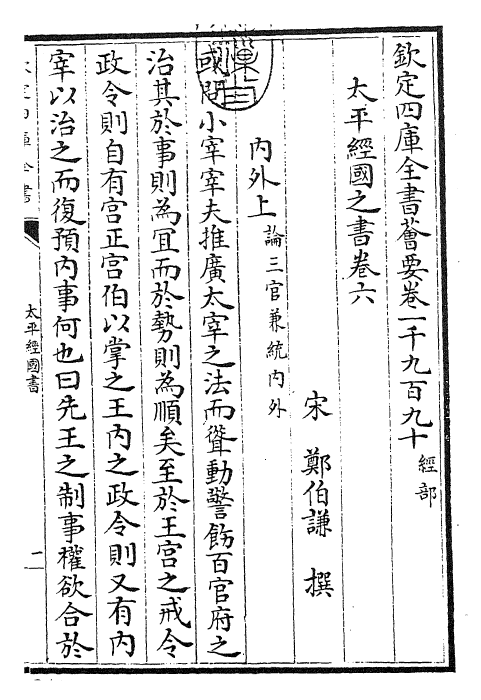 欽定四庫全書薈要卷一千九百九十 經部
太平經國之書卷六
宋 鄭伯謙 撰
內外上 論三官兼統內外
或問小宰宰夫推廣太宰之法而聳動警飭百官府之
治其於事則為冝而於勢則為順矣至於王宫之戒令
政令則自有宫正宫伯以掌之王內之政令則又有内
宰以治之而復預内事何也曰先王之制事權欲合於
太平經國書